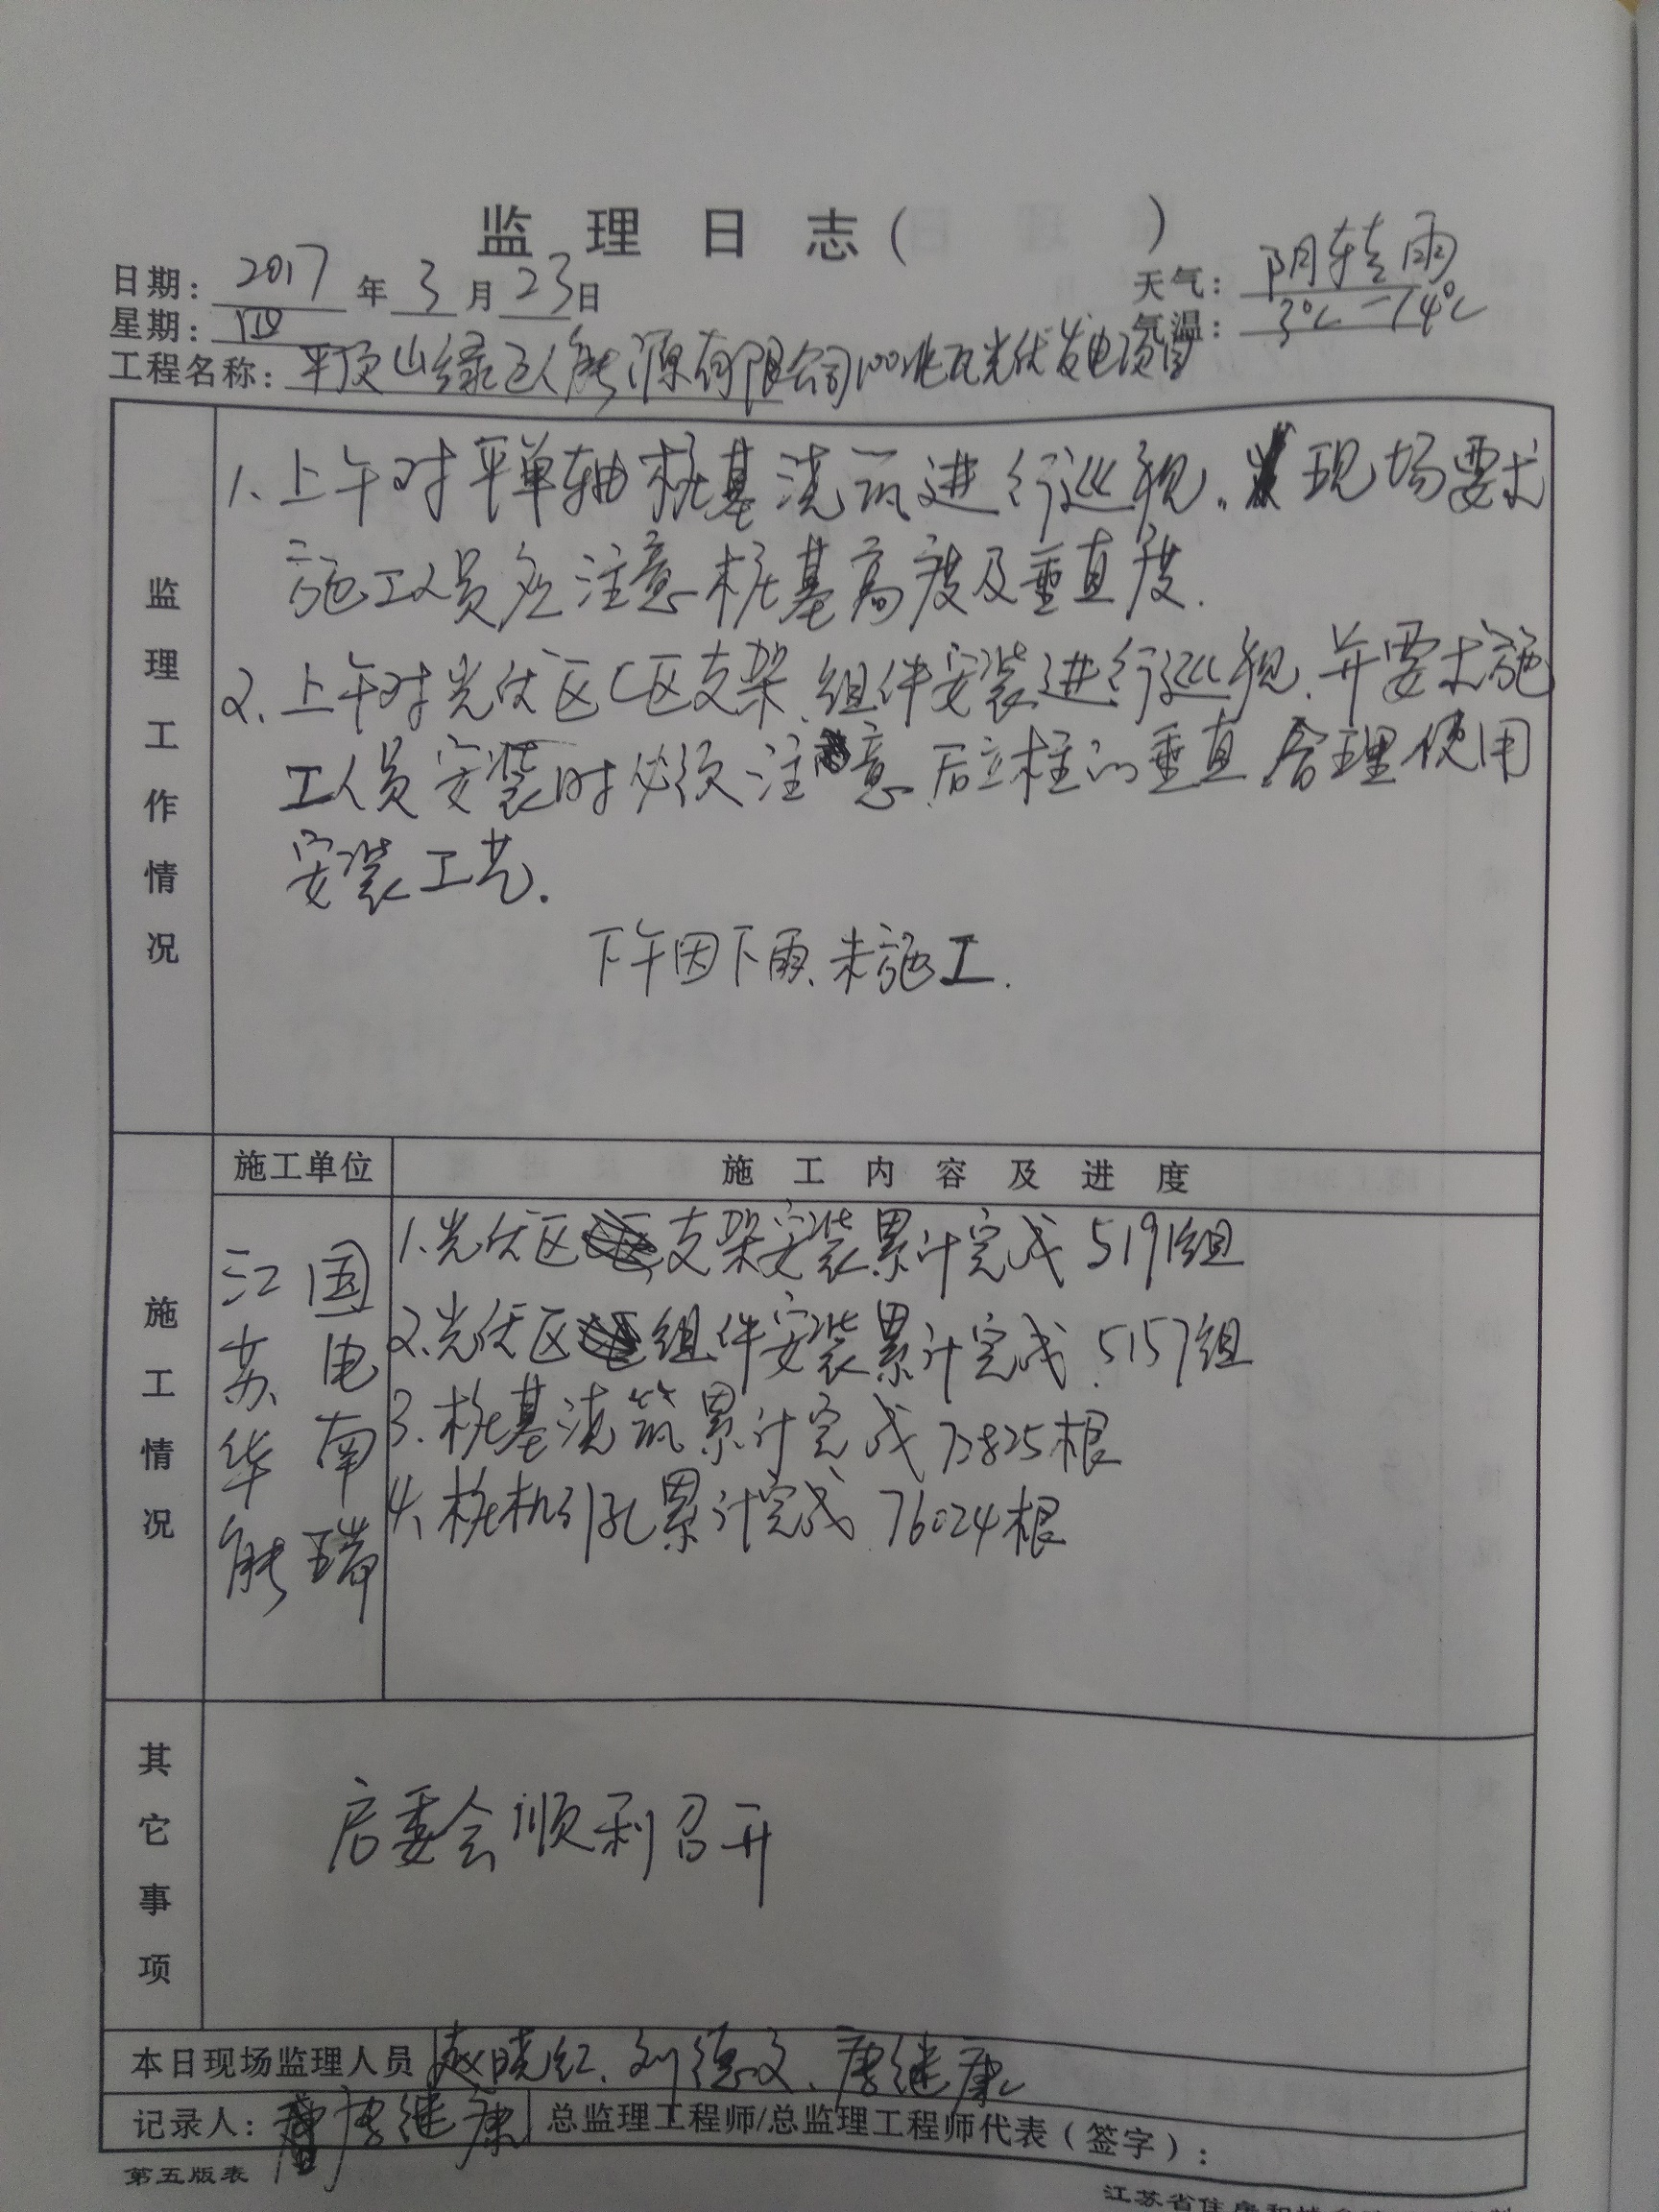 监理日志（ ）
日期：2017年3月23日 天气：阴转雨
星期：四 气温：3℃-14℃
工程名称：平顶山绿巨人能源有限公司100兆瓦光伏发电项目
监理工作情况
1、上午对平单轴桩基浇筑进行巡视，现场要求
施工人员应注意桩基高度及垂直度.
2、上午对光伏区C区支架、组件安装进行巡视，并要求施
工人员安装时必须注意后立柱的垂直合理使用
安装工艺.
下午因下雨、未施工.
施工单位 施工内容及进度
施工情况
江苏华能
国电南瑞
1.光伏区支架安装累计完成5191组
2.光伏区组件安装累计完成.5157组
3.桩基浇筑累计完成73825根
4、桩机引孔累计完成76024根
其它事项
启委会顺利召开
本日现场监理人员 赵晓红、刘德文、唐继康
记录人：唐继康 总监理工程师/总监理工程师代表（签字）：
第五版表
江苏省住房和城